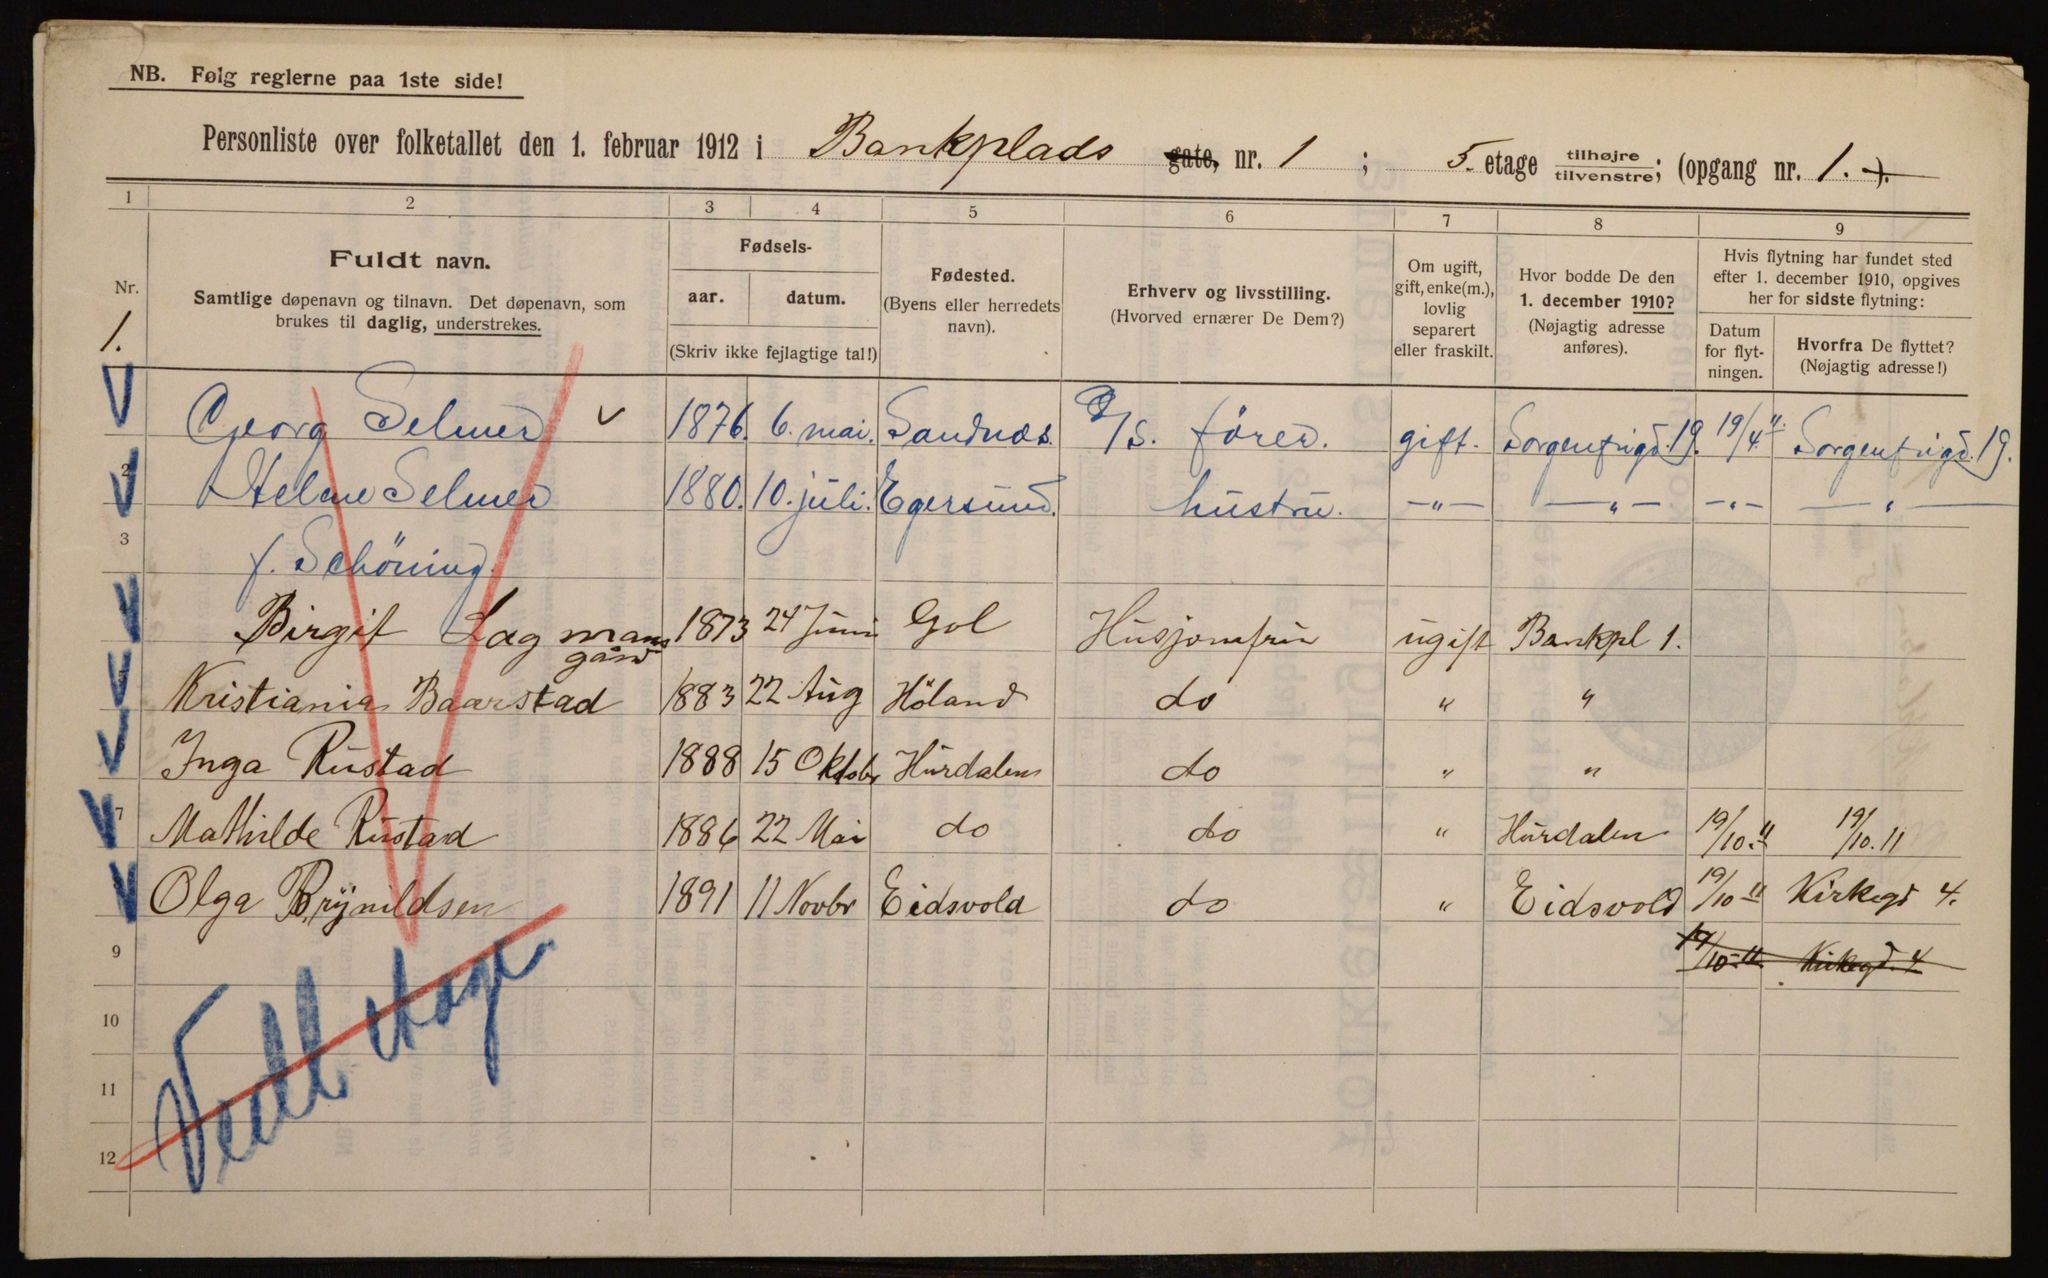 NB. Følg reglerne paa 1ste side!
Personliste over folketallet den 1. februar 1912 i Bankplads gate, nr. 1 ; 5. etage tilhøjre tilvenstre; (opgang nr. 1. ).
1 2 3 4 5 6 7 8 9
Nr.
1.
Fuldt navn.
Samtlige døpenavn og tilnavn. Det døpenavn, som
brukes til daglig, understrekes.
Fødsels-
aar. datum.
(Skriv ikke fejlagtige tal!)
Fødested.
(Byens eller herredets
navn).
Erhverv og livsstilling.
(Hvorved ernærer De Dem?)
Om ugift,
gift, enke(m.),
lovlig
separert
eller fraskilt.
Hvor bodde De den
1. december 1910?
(Nøjagtig adresse
anføres).
Hvis flytning har fundet sted
efter 1. december 1910, opgives
her for sidste flytning:
Datum
for flyt-
ningen.
Hvorfra De flyttet?
(Nøjagtig adresse!)
Georg Selmer 1876. 6. mai. Sandnæs. D/S. förer. gift. Sorgenfrigd. 19. 19/4 11. Sorgenfrigd. 19.
2 Helene Selmer 1880. 10. juli. Egersund. hustru. -"- -"- -"- -"-
3 f. Schöning.
Birgit Lagmans 1873 24 Juni Gol Husjomfru ugift Bankpl 1.
gård
Kristiania Baarstad 1883 22 Aug Höland do " "
Inga Rustad 1888 15 Oktobr Hurdalen do " "
7 Mathilde Rustad 1886 22 Mai do do " Hurdalen 19/10.11 19/10.11
Olga Brynildsen 1891 11 Novbr Eidsvold do " Eidsvold 19/10 11 Kirkegd 4.
9 19/10-11 Kirkegd. 4
10
11
12